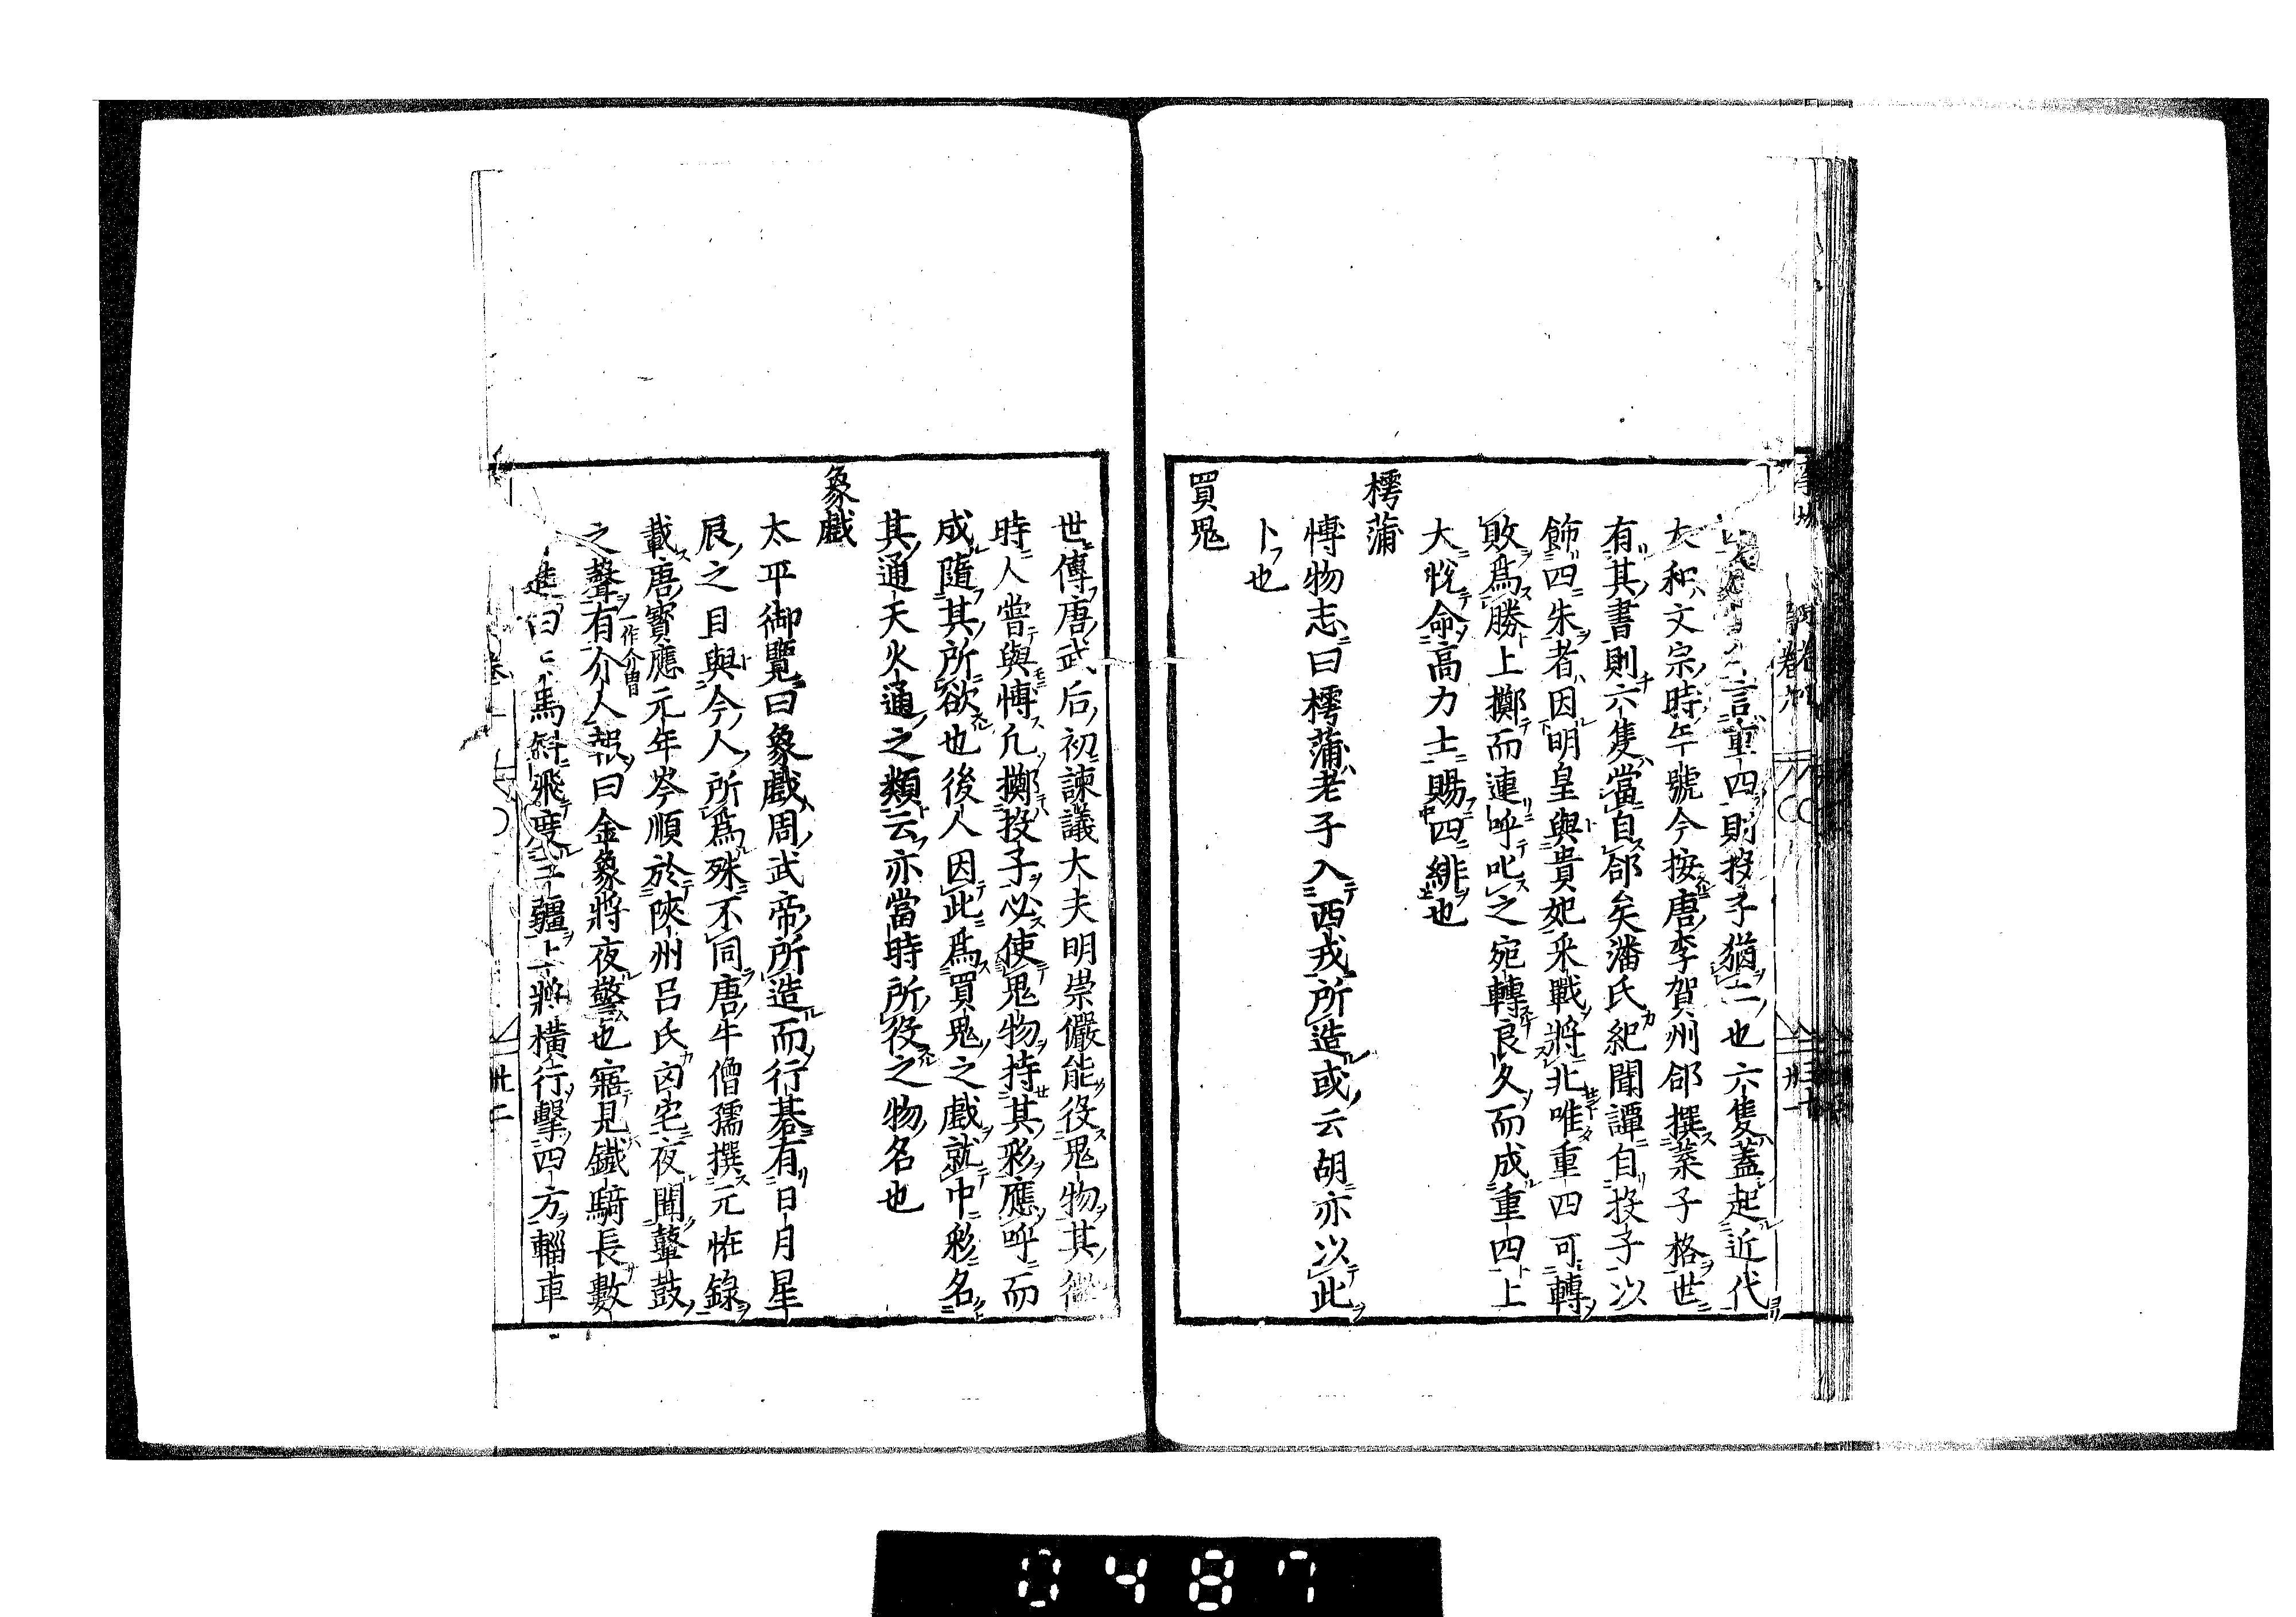 言重四則投子猶二也六隻蓋起近代
大和文宗時年號今按唐李賀州郃撰葉子格世
有其書則六隻當自郃矣潘氏紀聞譚自投子以
飾四朱者因明皇與貴妃采戰將北唯重四可轉
敗爲勝上擲而連呼叱之宛轉良久而成重四上
大悅命高力士賜四緋也
樗蒲
慱物志曰樗蒲老子入西戎所造或云胡亦以此
卜也
買鬼
世傳唐武后初諫議大夫明崇儼能役鬼物其
時人嘗與慱凢擲投子必使鬼物持其彩應呼而
成隨其所欲也後人因此爲買鬼之戲就中彩名
其通天火通之類云亦當時所役之物名也
象戲
太平御覽曰象戲周武帝所造而行棊有日月星
辰之目與今人所爲殊不同唐牛僧孺撰元恠錄
載唐寳應元年岑順於陝州吕氏凶宅夜聞鼙鼓
之聲有介人報曰金象將夜警也寤見鐵騎長數
一作介冑
進曰馬斜飛度三疆上將橫行擊四方輜車
卅二
0487